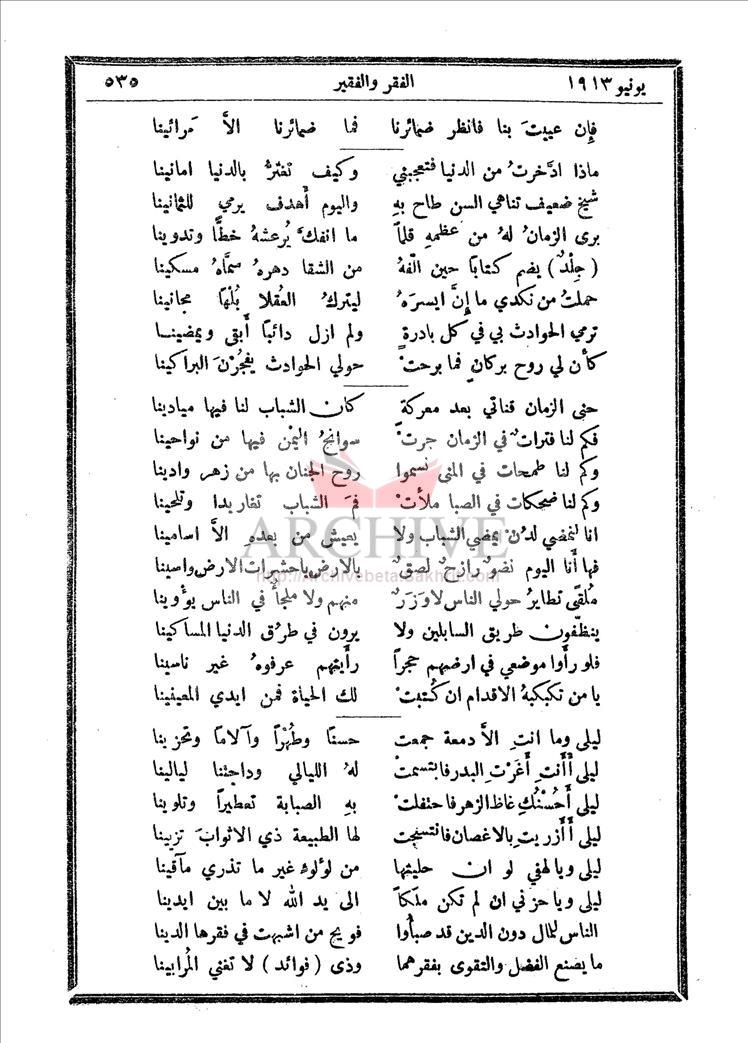 يونيو ١٩١٣ الفقر والفقير ٥٣٥
فإن عييتَ بنا فانظر ضمائرنا فما ضمائرنا الاَّ مَرائينا
ماذا ادَّخرتُ من الدنيا فتعجبني وكيف تغترُّ بالدنيا امانينا
شيخ ضعيف تناهي السن طاح بهِ واليوم أهدف يرمي للثمانينا
برى الزمانُ لهُ من عظمهِ قلماً ما انفكَّ يُرعشهُ خطًّا وتدوينا
(جِلْدٌ) يضم كتابًا حين الَّفهُ من الشقا دهرهُ سمَّاهُ مسكينا
حملتُ من نكدي ما إنَّ ايسرَهُ ليتركُ العُقلا بُلْهًا مجانينا
ترمي الحوادث بي في كل بادرةٍ ولم ازل دائبًا أبقى ويمضينا
كأن لي روح بركانٍ فما برحتْ حولي الحوادث يفجُرْنَ البراكينا
حنى الزمان قناتي بعد معركةٍ كان الشباب لنا فيها ميادينا
فكم لنا فتراتٌ في الزمان جرتْ سوانحُ اليُمن فيها من نواحينا
وكم لنا طمحات في المنى نسموا روح الجنان بها من زهر وادينا
وكم لنا ضحكات في الصبا ملأتْ فمَ الشباب تغاريدا وتلحينا
انا لنمضي لدُنْ يمضي الشباب ولا يعيش من بعدهِ الاَّ اسامينا
فها أنا اليوم نضوٌ رازحٌ لصقٌ بالارض يا حشرات الارض واسينا
مُلقًى تطايرُ حولي الناس لا وَزَرٌ منهم ولا ملجأٌ في الناس يؤْوينا
ينظّفون طريق السابلين ولا يرون في طرُق الدنيا المساكينا
فلو رأَوا موضعي في ارضهم حجراً رأيتهم عرفوهُ غير ناسينا
يا من تكبكبهُ الاقدام ان كُتبتْ لك الحياة فمن ايدي المعينينا
ليلى وما انتِ الاَّ دمعة جمعت حسنًا وطُهْراً وآلامًا وتحزينا
ليلى أأنتِ أغَرْتِ البدر فابتسمتْ لهُ الليالي وداجتنا ليالينا
ليلى أحُسْنُكِ غاظ الزهر فاحتفلتْ بهِ الصبابة تعطيراً وتلوينا
ليلى أأزريتِ بالاغصان فانتسجت لها الطبيعة ذي الاثوابَ تزيينا
ليلى ويا لهفي لو ان حليتها من لؤلوءٍ غير ما تذري مآقينا
ليلى ويا حزني ان لم تكن ملَكاً الى يد الله لا ما بين ايدينا
الناس للمال دون الدين قد صبأُوا فويح من اشبهت في فقرها الدينا
ما يصنع الفضل والتقوى بفقرهما وذى (فوائد) لا تغني المُرابينا
ARCHIVE